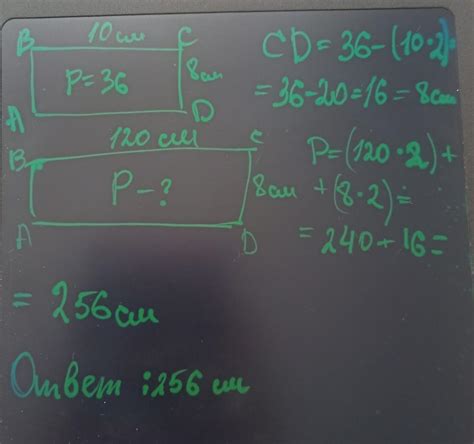 10 см
B C
P=36
8см
A D
CD=36-(10·2)=
=36-20=16=8см
120 см
B C
P-?
8см
A D
P=(120·2)+
+(8·2)=
=240+16=
=256см
Ответ:256 см